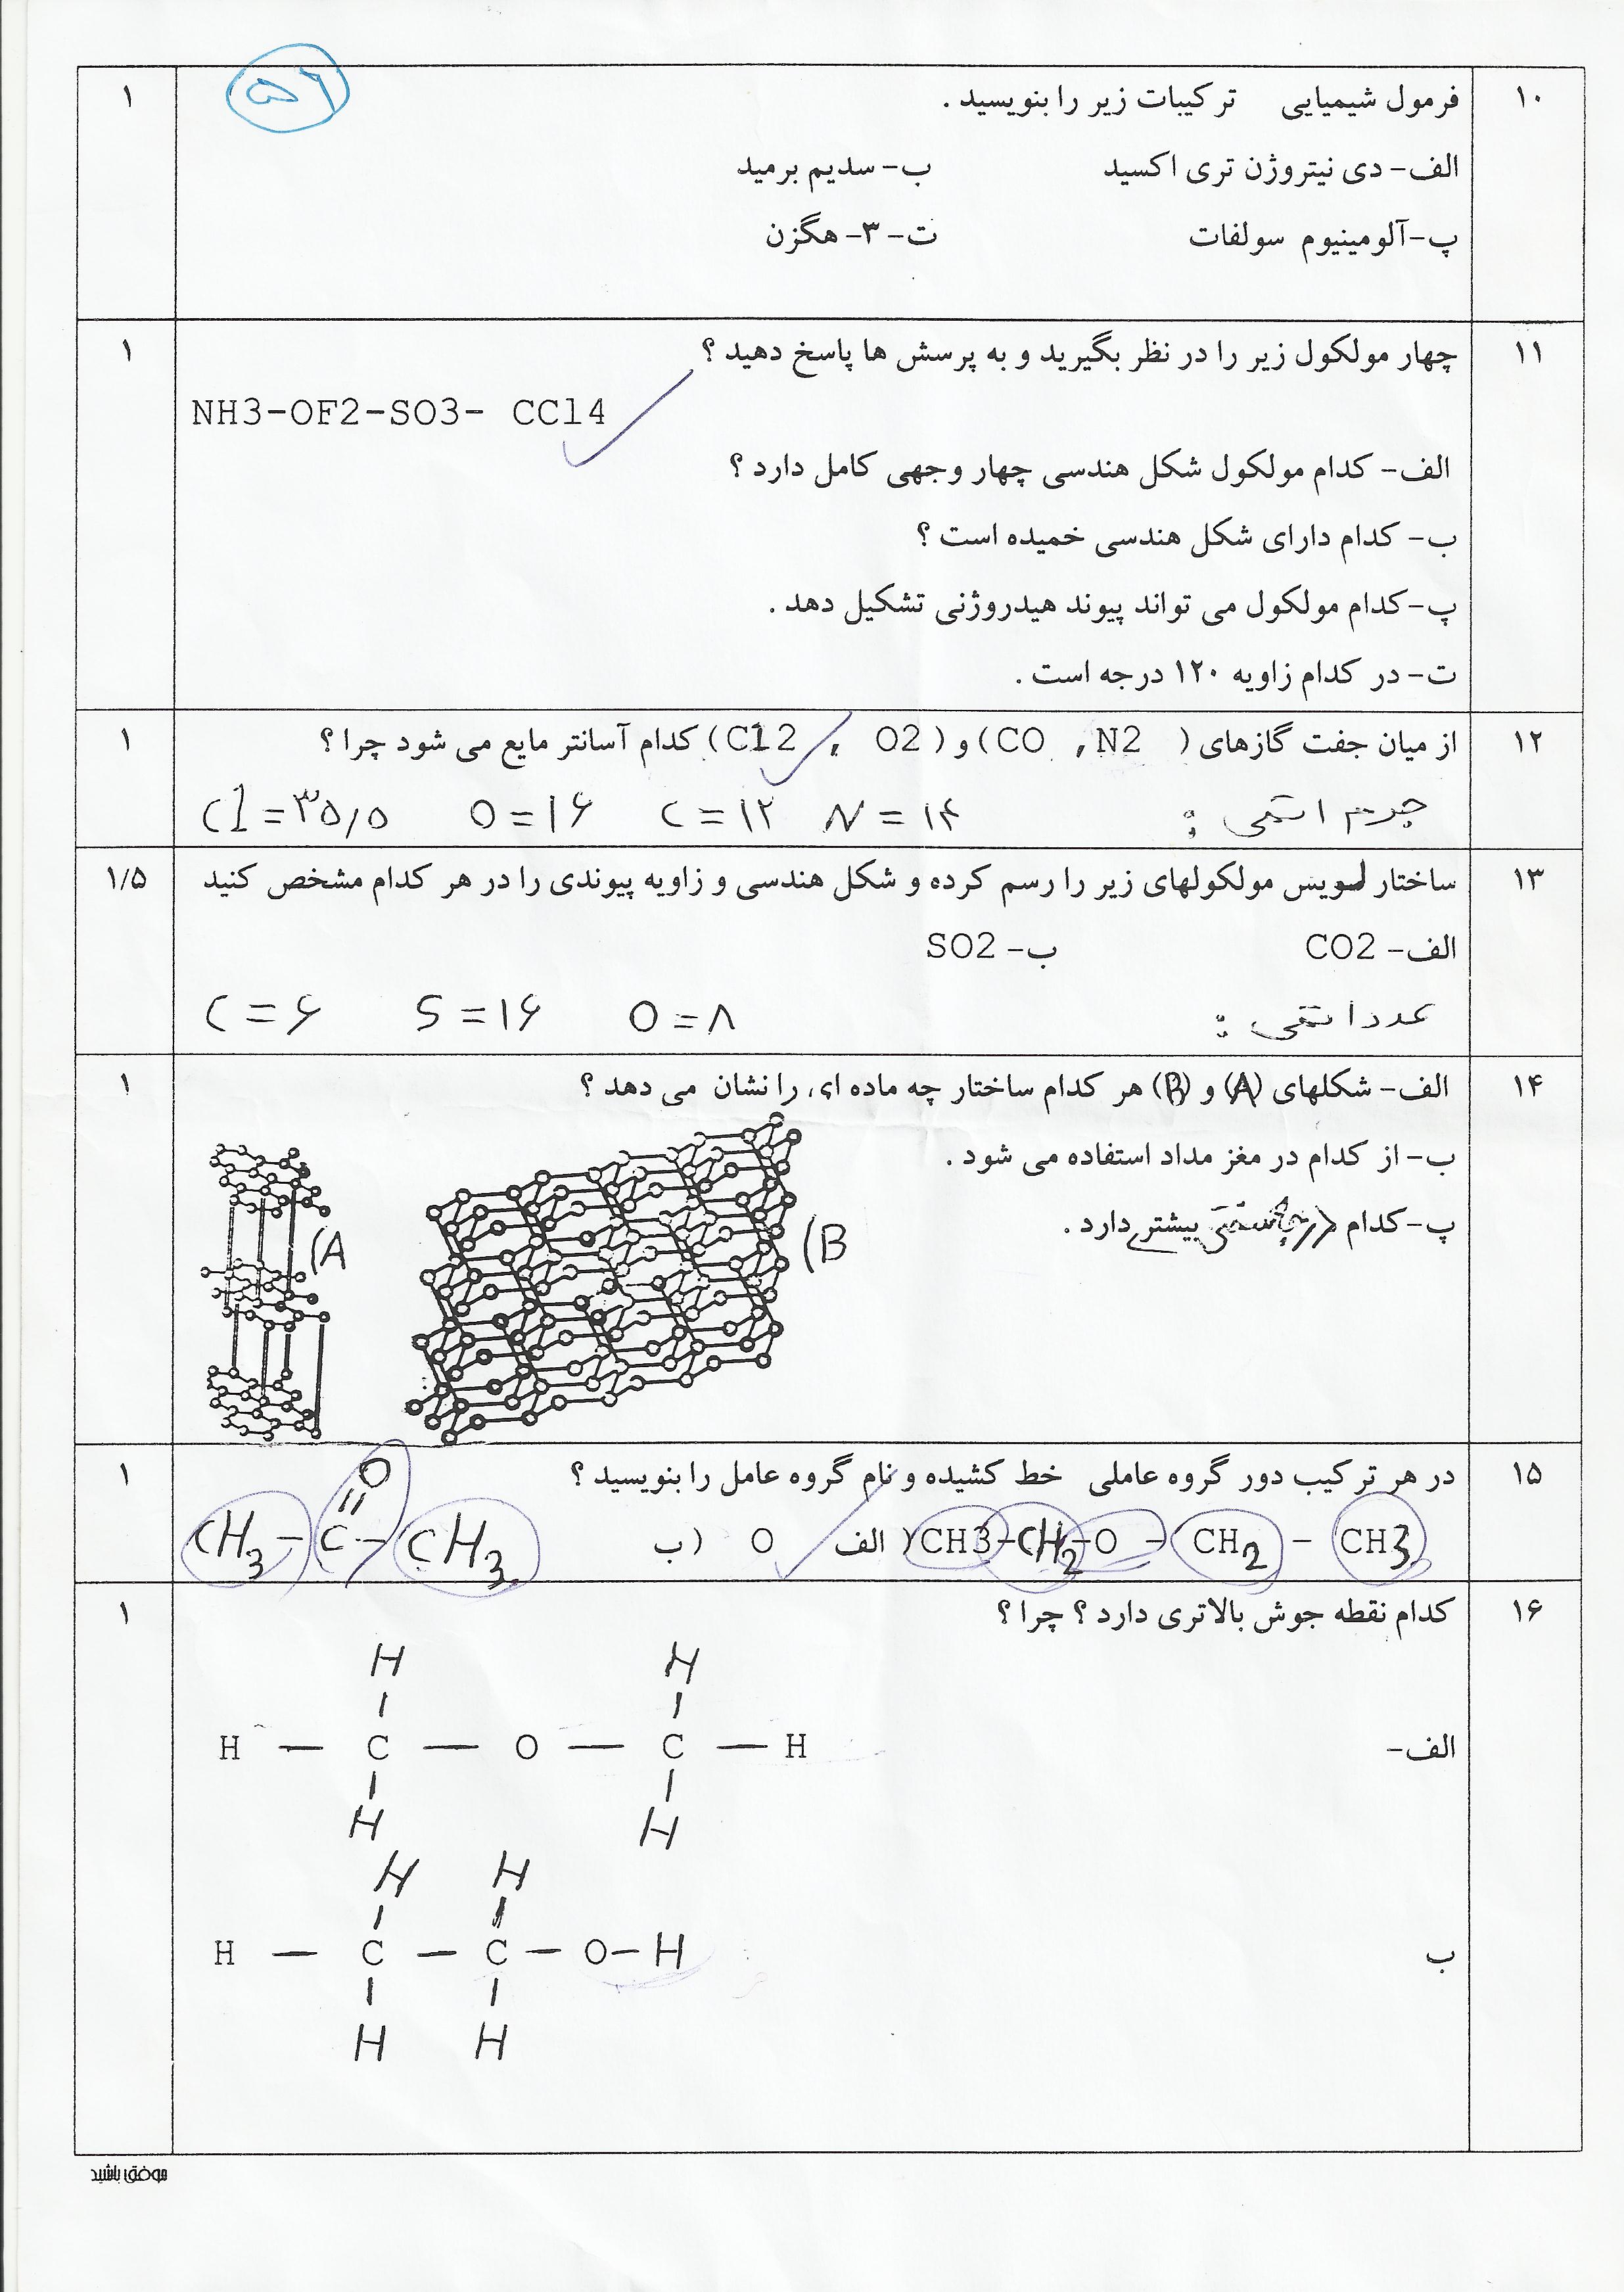 ۵۶
۱۰ فرمول شیمیایی ترکیبات زیر را بنویسید . ۱
الف- دی نیتروژن تری اکسید ب- سدیم برمید
پ-آلومینیوم سولفات ت- ۳- هگزن
۱۱ چهار مولکول زیر را در نظر بگیرید و به پرسش ها پاسخ دهید ؟ ۱
NH3-OF2-SO3- CCl4
الف- کدام مولکول شکل هندسی چهار وجهی کامل دارد ؟
ب- کدام دارای شکل هندسی خمیده است ؟
پ-کدام مولکول می تواند پیوند هیدروژنی تشکیل دهد .
ت- در کدام زاویه ۱۲۰ درجه است .
۱۲ از میان جفت گازهای ( CO , N2 ) و ( Cl2 , O2 ) کدام آسانتر مایع می شود چرا ؟ ۱
جرم اتمی : N = ۱۴ C = ۱۲ O = ۱۶ Cl = ۳۵/۵
۱۳ ساختار لوویس مولکولهای زیر را رسم کرده و شکل هندسی و زاویه پیوندی را در هر کدام مشخص کنید ۱/۵
الف- CO2 ب- SO2
عدد اتمی : O = ۸ S = ۱۶ C = ۶
۱۴ الف- شکلهای (A) و (B) هر کدام ساختار چه ماده ای، را نشان می دهد ؟ ۱
ب- از کدام در مغز مداد استفاده می شود .
پ-کدام بیشتر دارد .
(A
(B
۱۵ در هر ترکیب دور گروه عاملی خط کشیده و نام گروه عامل را بنویسید ؟ ۱
الف) CH3-CH2-O - CH2 - CH3
ب) O
O
CH3 - C - CH3
۱۶ کدام نقطه جوش بالاتری دارد ؟ چرا ؟ ۱
H H
الف- H — C — O — C — H
H H
H H
ب H — C — C — O - H
H H
موفق باشید